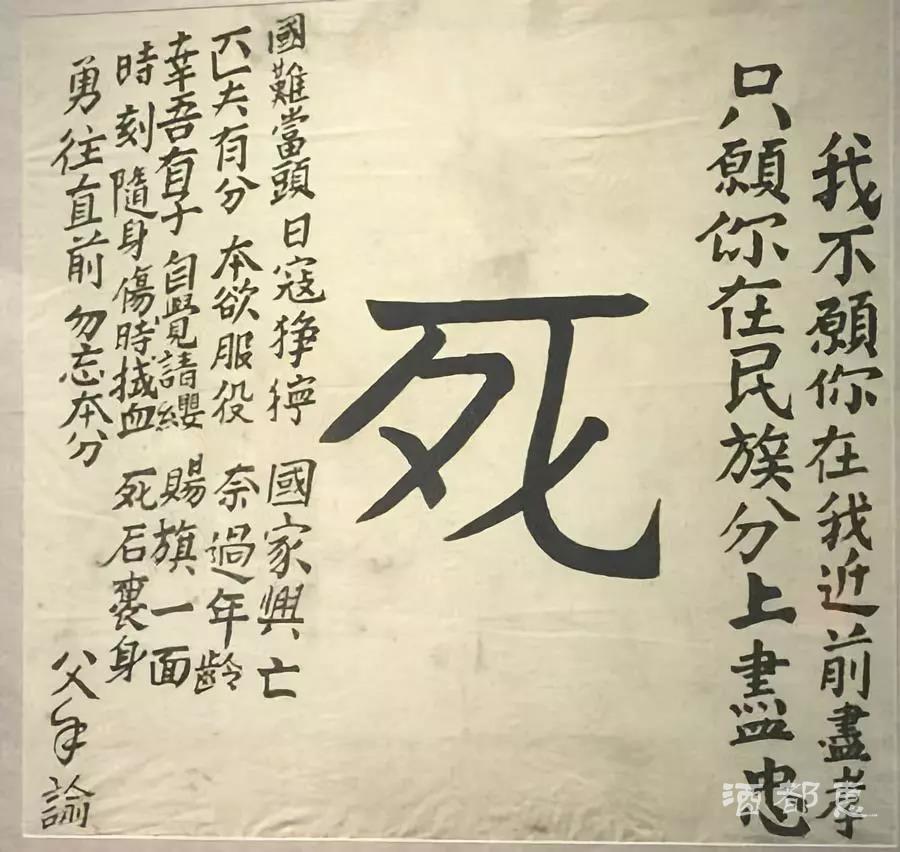 我不願你在我近前盡孝
只願你在民族分上盡忠
死
國難當頭 日寇猙獰 國家興亡
匹夫有分 本欲服役 奈過年齡
幸吾有子 自覺請纓 賜旗一面
時刻隨身 傷時拭血 死后裹身
勇往直前 勿忘本分 父手諭
酒都